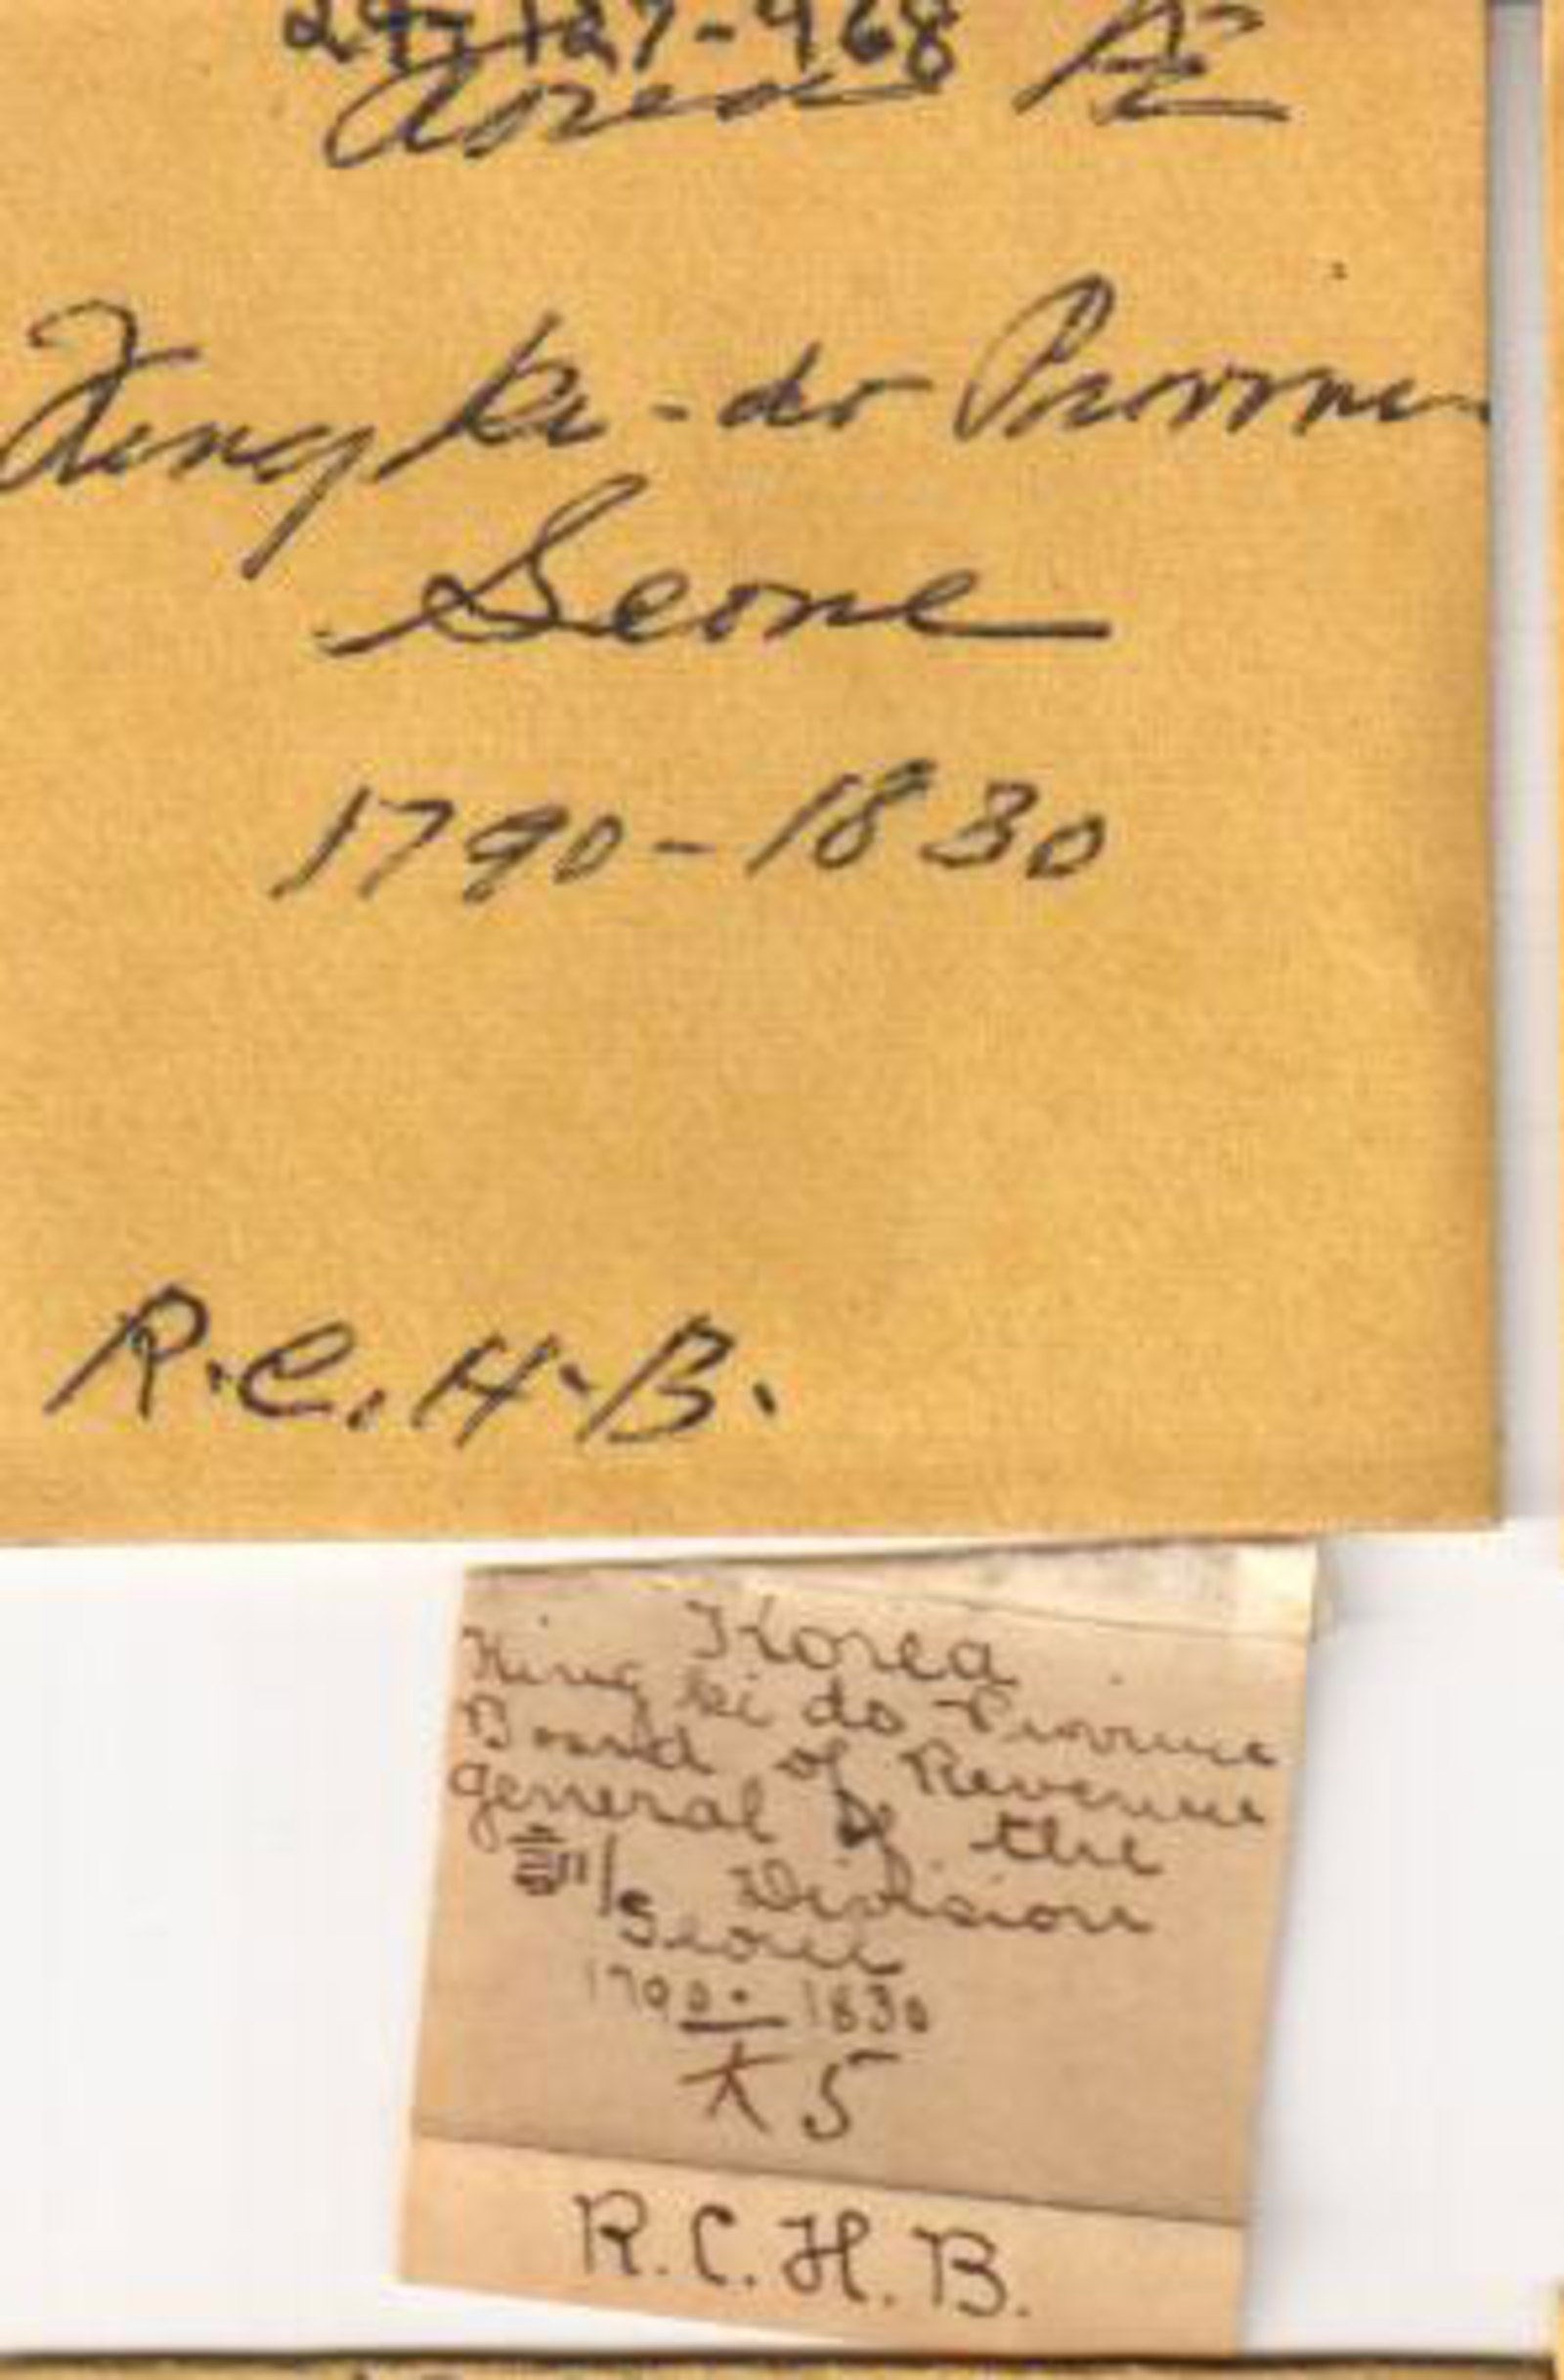 29-127-968 Æ
Korea
King ki-do Provin
Seoul
1790-1830
R.C.H.B.
Korea
King ki do Province
Board of Revenue
general of the
訓/s Division
Seoul
1790-1830
大 5
R.C.H.B.